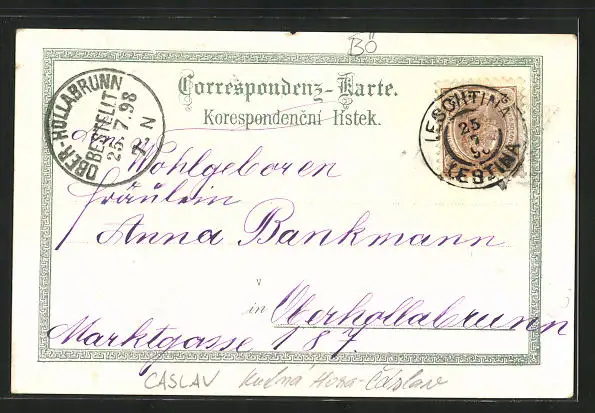 BÖ
Correspondenz-Karte.
Korespondenční lístek.
OBER-HOLLABRUNN
BESTELLT
26.7.98
N
LESCHTINA
25
LEŠTINA
Wohlgeboren
Fräulein
Anna Bankmann
in Oberhollabrunn
Marktgasse 187
CASLAV Kutná Hora-Čáslav